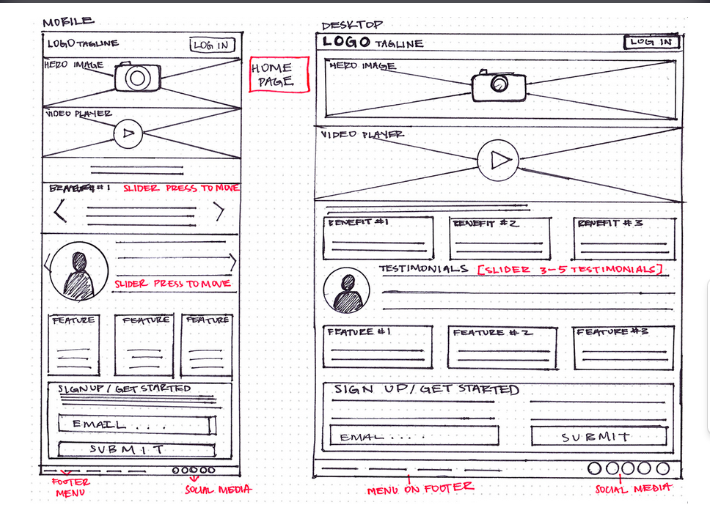 MOBILE
LOGO TAGLINE
LOG IN
HERO IMAGE
VIDEO PLAYER
#1 SLIDER PRESS TO MOVE
SLIDER PRESS TO MOVE
FEATURE
FEATURE
FEATURE
SIGNUP / GET STARTED
EMAIL . . .
SUBMIT
FOOTER
MENU
SOCIAL MEDIA
HOME
PAGE
DESKTOP
LOGO TAGLINE
LOG IN
HERO IMAGE
VIDEO PLAYER
BENEFIT #1
BENEFIT #2
BENEFIT #3
TESTIMONIALS [SLIDER 3-5 TESTIMONIALS]
FEATURE #1
FEATURE #2
FEATURE #3
SIGN UP/GET STARTED
EMAL ....
SUBMIT
MENU ON FOOTER
SOCIAL MEDIA